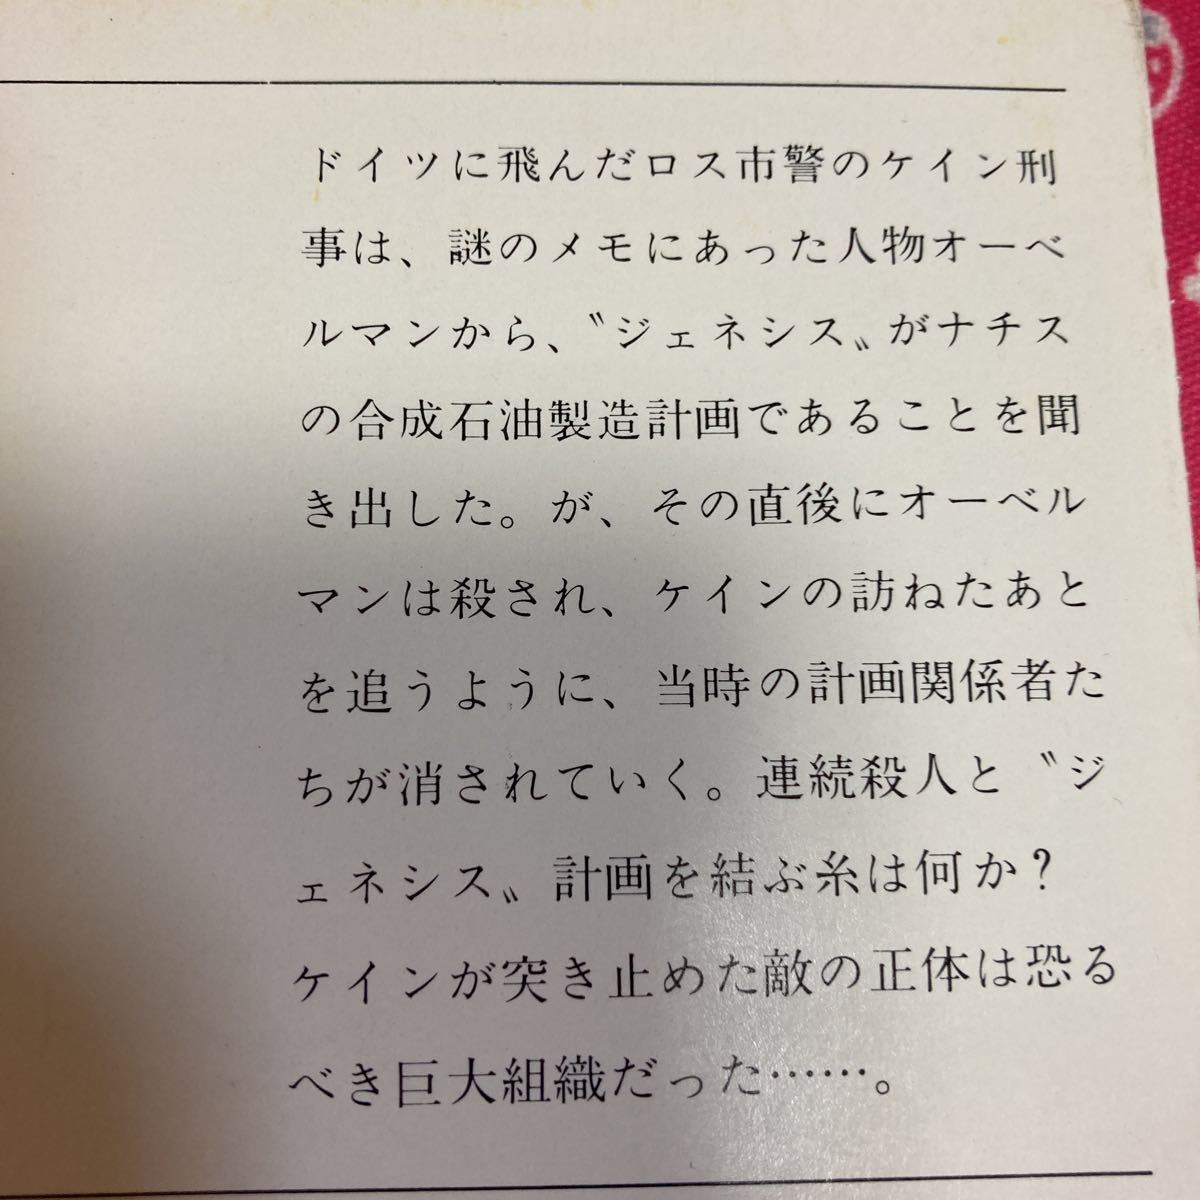 ドイツに飛んだロス市警のケイン刑
事は、謎のメモにあった人物オーベ
ルマンから、〝ジェネシス〟がナチス
の合成石油製造計画であることを聞
き出した。が、その直後にオーベル
マンは殺され、ケインの訪ねたあと
を追うように、当時の計画関係者た
ちが消されていく。連続殺人と〝ジ
ェネシス〟計画を結ぶ糸は何か？
ケインが突き止めた敵の正体は恐る
べき巨大組織だった……。